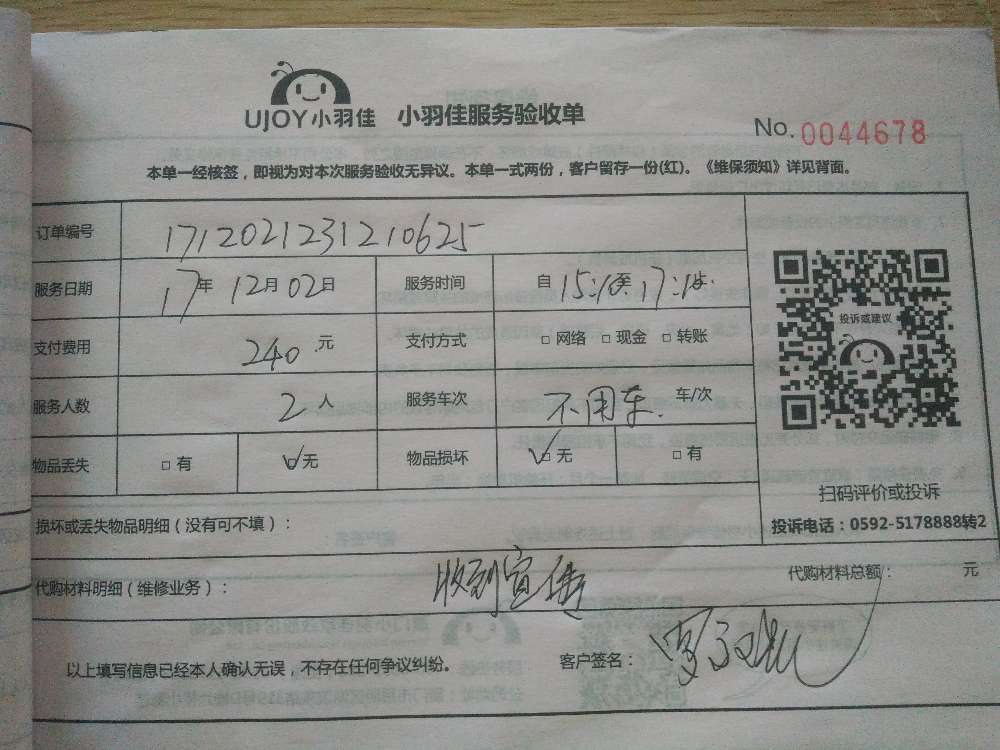 UJOY小羽佳 小羽佳服务验收单
No. 0044678
本单一经核签，即视为对本次服务验收无异议。本单一式两份，客户留存一份(红)。《维保须知》详见背面。
订单编号 1712021231210625
服务日期 17年12月02日 服务时间 自15:10至17:10止
支付费用 240元 支付方式 □网络 □现金 □转账
服务人数 2人 服务车次 不用车 车/次
物品丢失 □有 ☑无 物品损坏 ☑无 □有
投诉或建议
扫码评价或投诉
投诉电话：0592-5178888转2
损坏或丢失物品明细（没有可不填）：
代购材料明细（维修业务）： 收到宣传 代购材料总额： 元
以上填写信息已经本人确认无误，不存在任何争议纠纷。 客户签名：